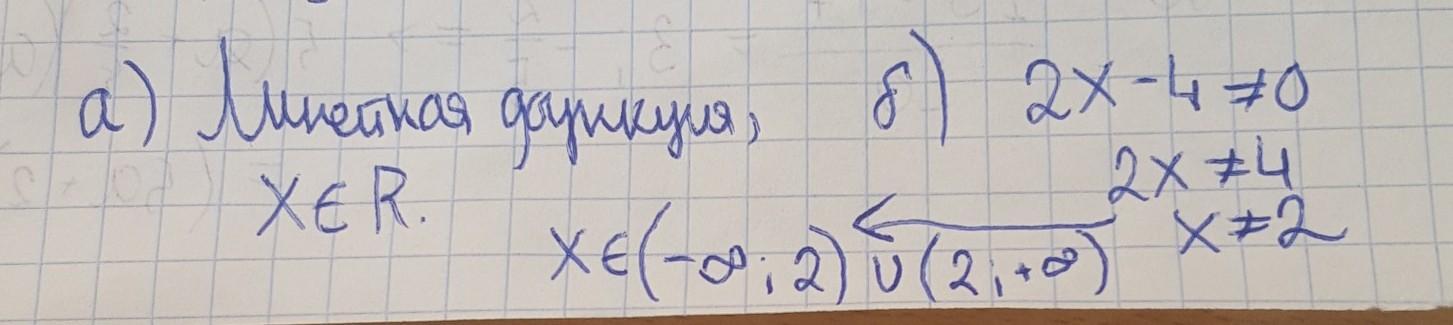 а) Линейная функция,
x∈R.
б) 2x-4≠0
2x≠4
x≠2
x∈(-∞;2)∪(2;+∞)